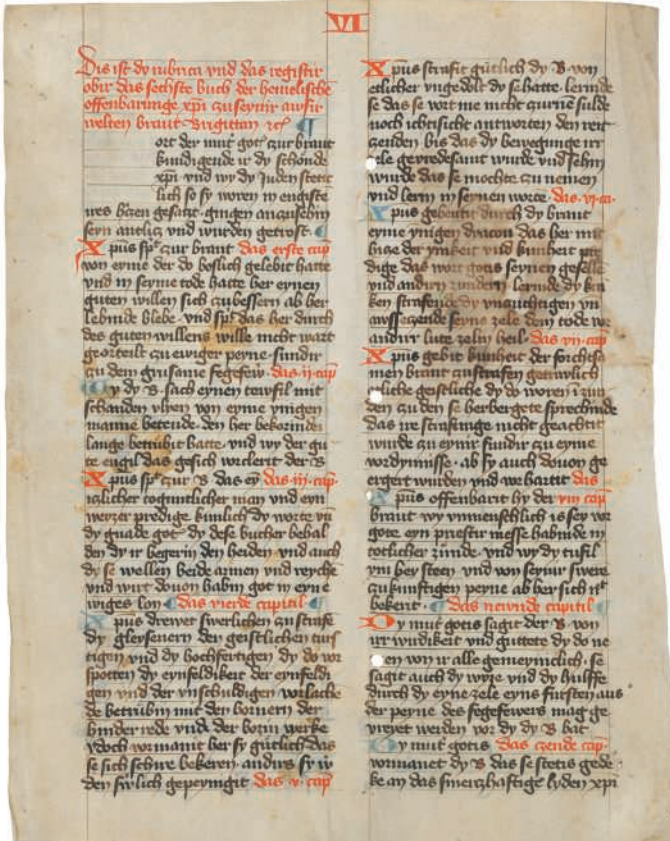 VI
Dis ist dy rubrica vnd das registir
obir das sechste buch der hemelische
offenbaringe xpi zu seynir awsir
welten braut Birgittan rc
ort der mut got czur braut
kundigende ir dy schonde
xpi vnd wy dy Juden stetic
lich so sy woren in engiste
ires herzen gesatzt gingen anzusehin
seyn antlicz vnd wurden getrost
Xpus spr czur braut das erste cap
von eyme der do boslich gelebit hatte
vnd in seyme tode hatte her eynen
guten willen sich zcubessern ab her
lebinde blebe vnd spr das her durch
des guten willens wille nicht wart
georteilt zu ewiger peyne sundir
zu dem grusame fegefewir das ij cap
y dy B sach eynen tewfil mit
schanden vlyen von eyme ynigen
manne betende den her bekorinde
lange betrubit hatte vnd wy der gu
te engil das gesich vorclerit der B
Xpus spr czur B das ey das iij cap
iczlicher togintlicher man vnd eyn
weyzer predige kunlich dy worte vn
dy gnade got dy dese bucher behal
den dy ir begerin den heiden vnd auch
dy se wellen beide armen vnd reyche
vnd wirt douon habin got in eyne
wiges lon das vierde capitil
Xpus drewet swerlichen zu strafe
dy gleysenern der geistlichen tuf
tigen vnd dy hochfertigen dy do vor
spotten dy eynfeldikeit der eynfeldi
gen vnd der vnschuldigen vorlache
de betrubin mit den hornern der
hinder rede vnd der bozin werke
ydoch vormanit her sy gutlich das
se sich schire bekeren andirs sy w
den swlich gepeynigit das v cap
Xpus strafit gutlich dy B von
etlicher vngedolt dy se hatte lernde
se das se vort me nicht zurne sulde
noch ichtisicht antworten den reit
zenden bis das dy beweguge irr
zele gevredesamt wurde vnd sehin
wurde das se mochte zu nemen
vnd lern in seynen worte das vi ca
Xpus gebeutit durch dy braut
eyme ynigen dyacon das her mit
hicze der ynikeit vnd kunheit pre
dige das wort gotis seynen geselle
vnd andirn sundern lernde dy kra
ken strafende dy vnzuchtigen vn
awssetzende seyne zele dem tode vor
andirr lute zelin heil das vij cap
Xpus gebit kunheit der forchtsa
men braut zustrafen getrawlich
etliche geistliche dy do woren i sun
den zu den se herbergete sprechinde
das ire strafunge nicht geachtit
wurde zu eynir sundir zu eyme
vordynnisse ab sy auch douon ge
ergert wurden vnd vorhartit das
Xpus offenbarit hy der viii cap
braut wy vnmenschlich is sey vor
gote eyn priestir messe habinde in
totlicher sunde vnd wy dy tufil
ym bey steen vnd von seynir swere
zukunftigen peyne ab her sich nit
bekert das newnde capitil
Dy mut gotis sagit der B von
irr wirdikeit vnd guttete dy do ne
men von ir alle gemeynlich se
sagit auch dy wyze vnd dy hulffe
durch dy eyne zele eyns fursten aus
der peyne des fegefewers mag ge
vreyet werden vor dy dy B bat
Dy mut gotis das czende cap
vormanet dy B das se stetis gede
ke an das smerczhaftige lyden xpi